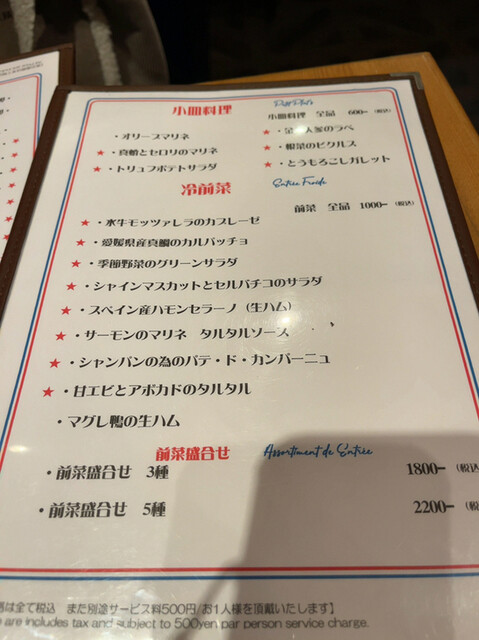 小皿料理 Petit Plats
小皿料理 全品 600- (税込)
・オリーブマリネ
★ ・真蛸とセロリのマリネ
★ ・トリュフポテトサラダ
★ ・金 人参のラペ
★ ・根菜のピクルス
★ ・とうもろこしガレット
冷前菜 Entrée Froide
前菜 全品 1000- (税込)
★ ・水牛モッツァレラのカプレーゼ
★ ・愛媛県産真鯛のカルパッチョ
★ ・季節野菜のグリーンサラダ
★ ・シャインマスカットとセルバチコのサラダ
★ ・スペイン産ハモンセラーノ（生ハム）
★ ・サーモンのマリネ タルタルソース
★ ・シャンパンの為のパテ・ド・カンパーニュ
★ ・甘エビとアボカドのタルタル
・マグレ鴨の生ハム
前菜盛合せ Assortiment de Entrée
・前菜盛合せ 3種 1800- (税込
・前菜盛合せ 5種 2200- (税
は全て税込 また別途サービス料500円/お1人様を頂戴いたします】
are includes tax and subject to 500yen par person service charge.